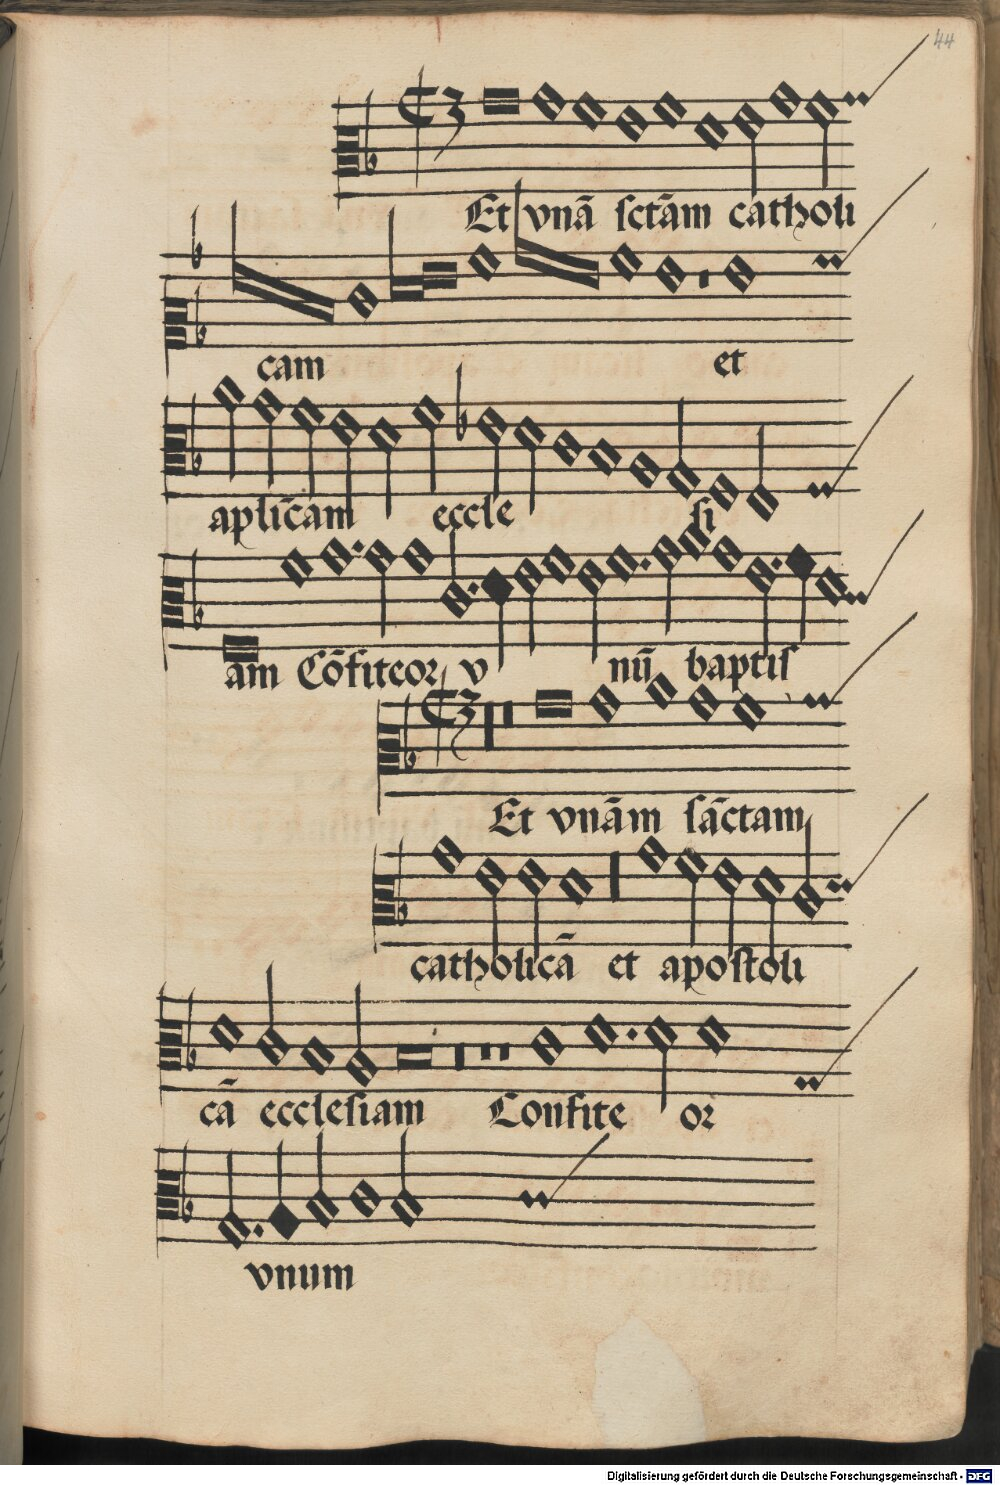 44
Et vnā sctām catholi
cam et
aplīcam eccle si
am Cōfiteor v nū baptis
Et vnām sāctam
catholicā et apostoli
cā ecclesiam Confite or
vnum
Digitalisierung gefördert durch die Deutsche Forschungsgemeinschaft - DFG